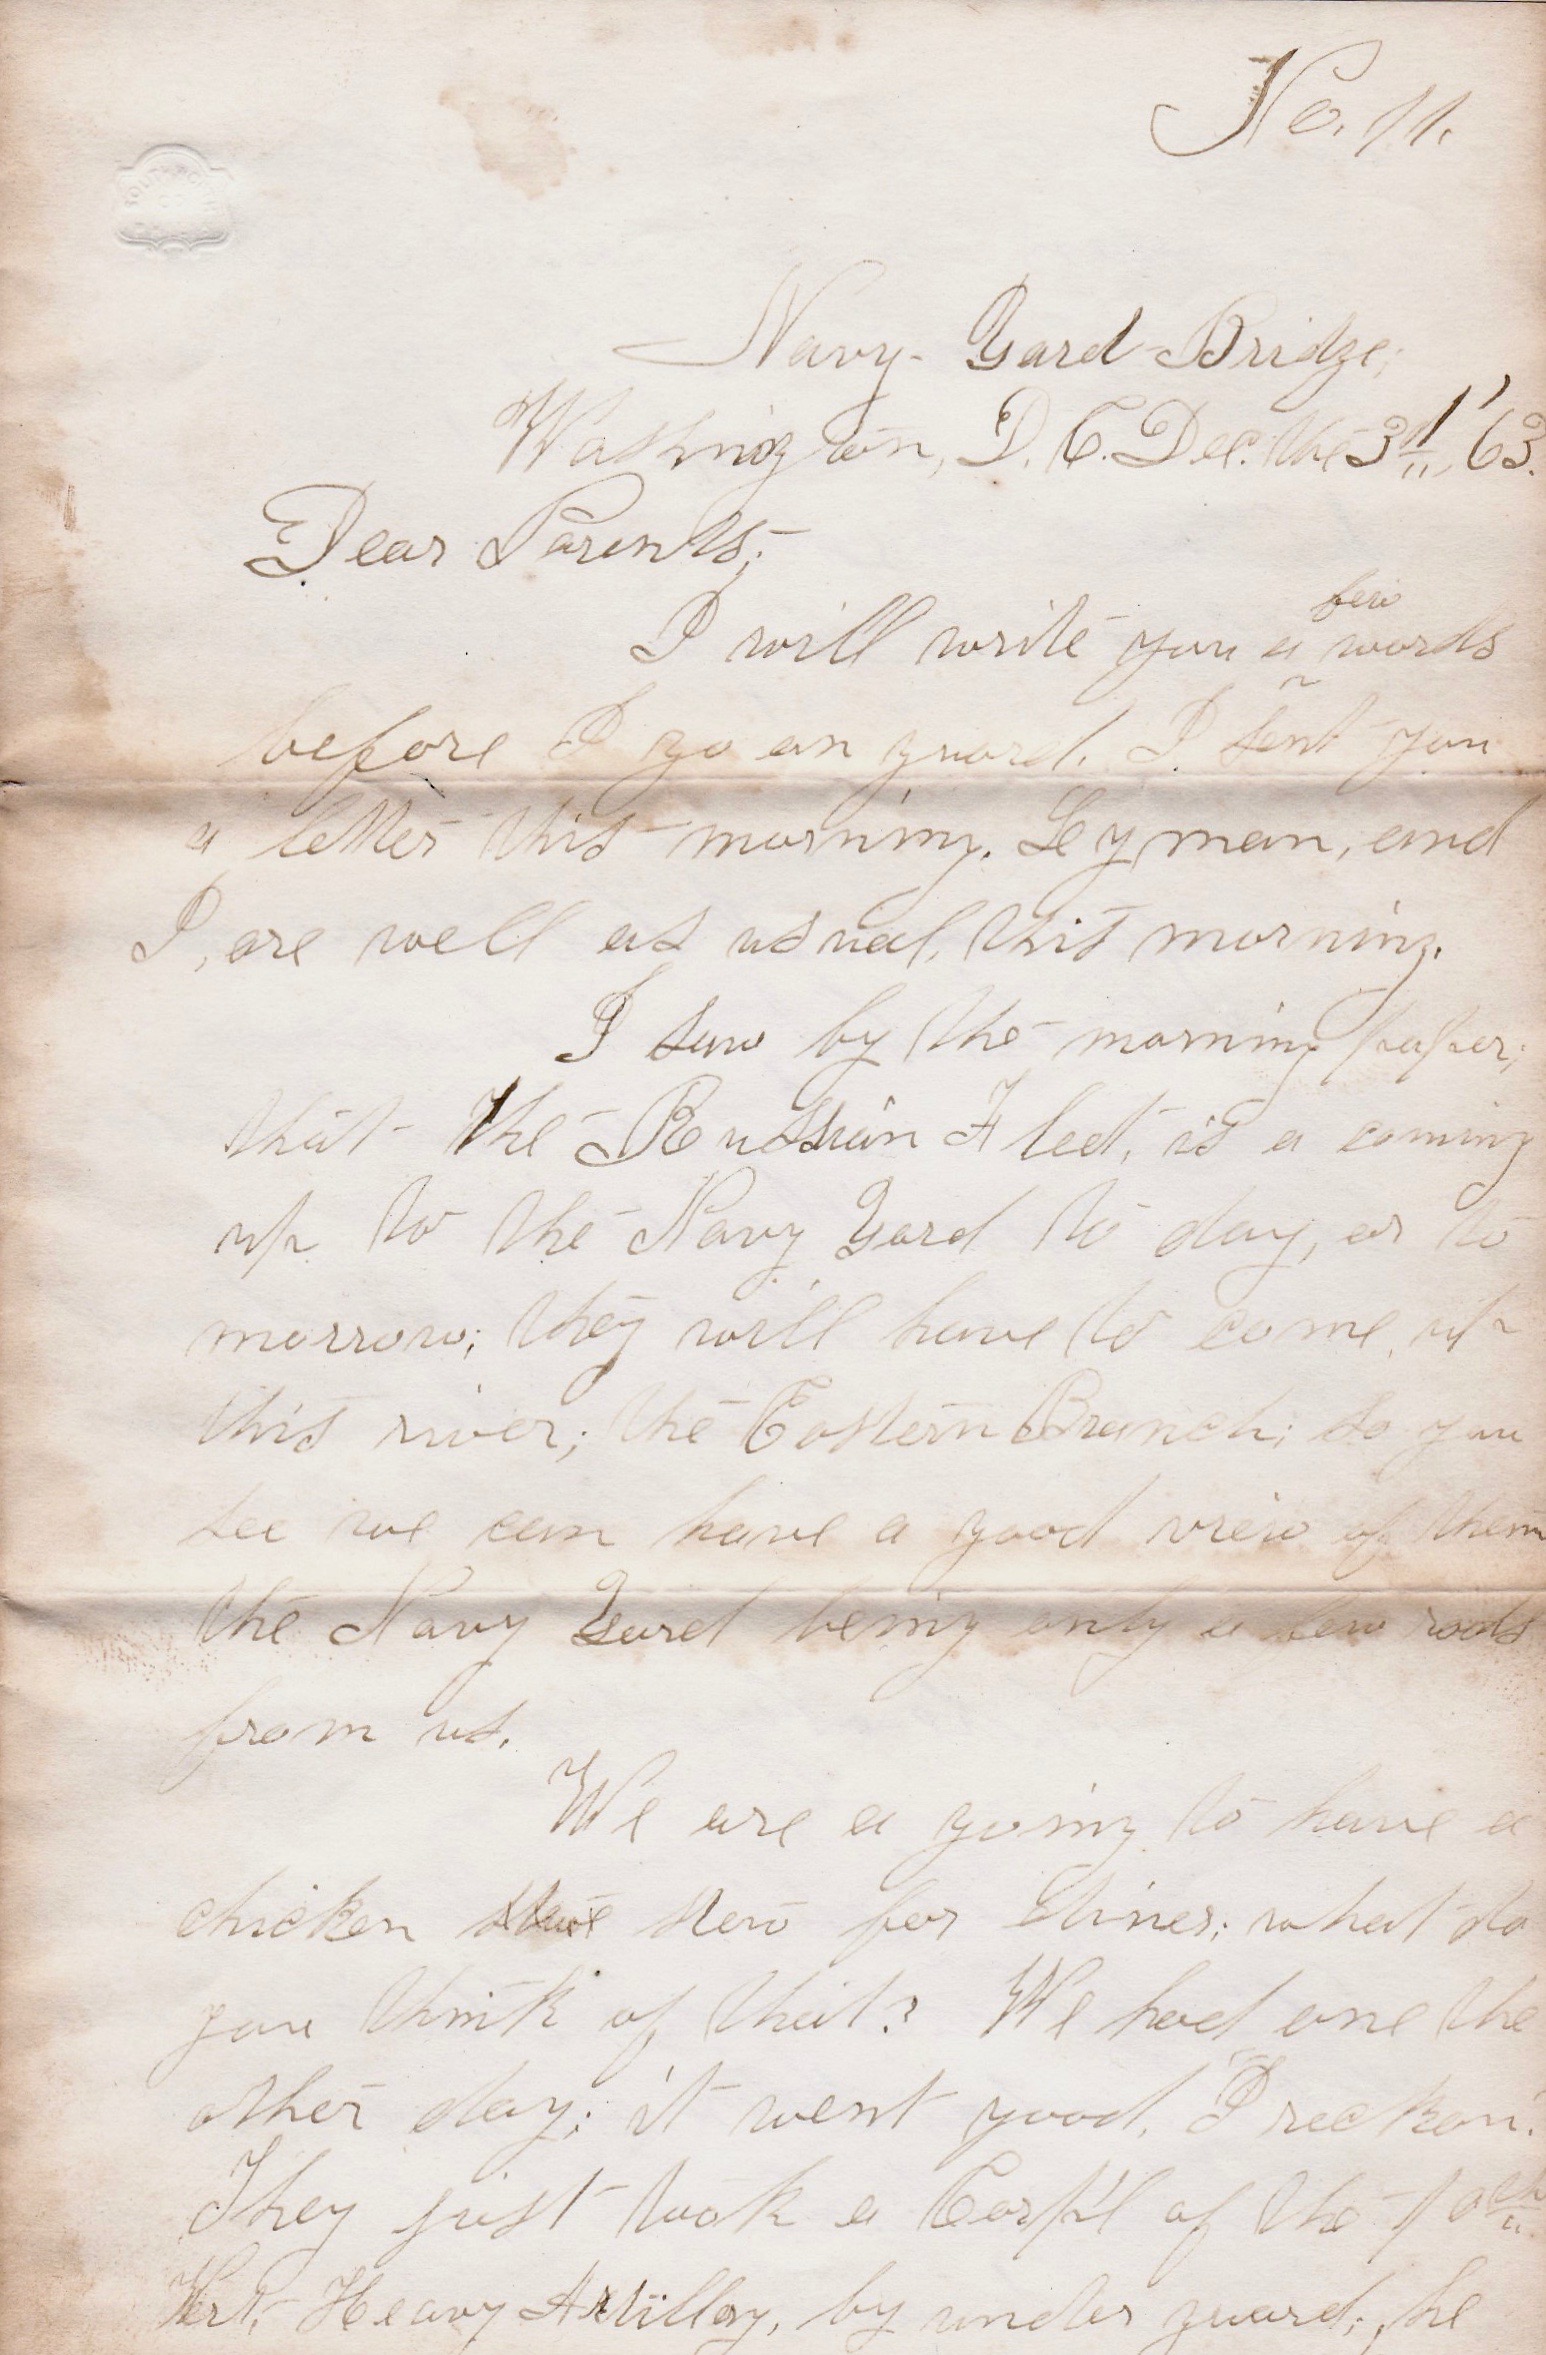 No. 11.
Navy-Yard-Bridge;
Washington, D. C. Dec. the 3d, '63.
Dear Parents;
few
I will write you a words
before I go on guard. I sent you
a letter this morning. Leyman, and
I, are well as usual, this morning.
I saw by the morning paper;
that the Russian Fleet, is a coming
up to the Navy Yard to day, or to
morrow; they will have to come up
this river; the Eastern Branch; so you
see we can have a good view of them
the Navy Yard being only a few rods
from us.
We are a going to have a
chicken stew for diner; what do
you think of that? We had one the
other day; it went good, I reckon.
They just took a Corp'l of the 10th
Heavy Artillery, by under guard; he